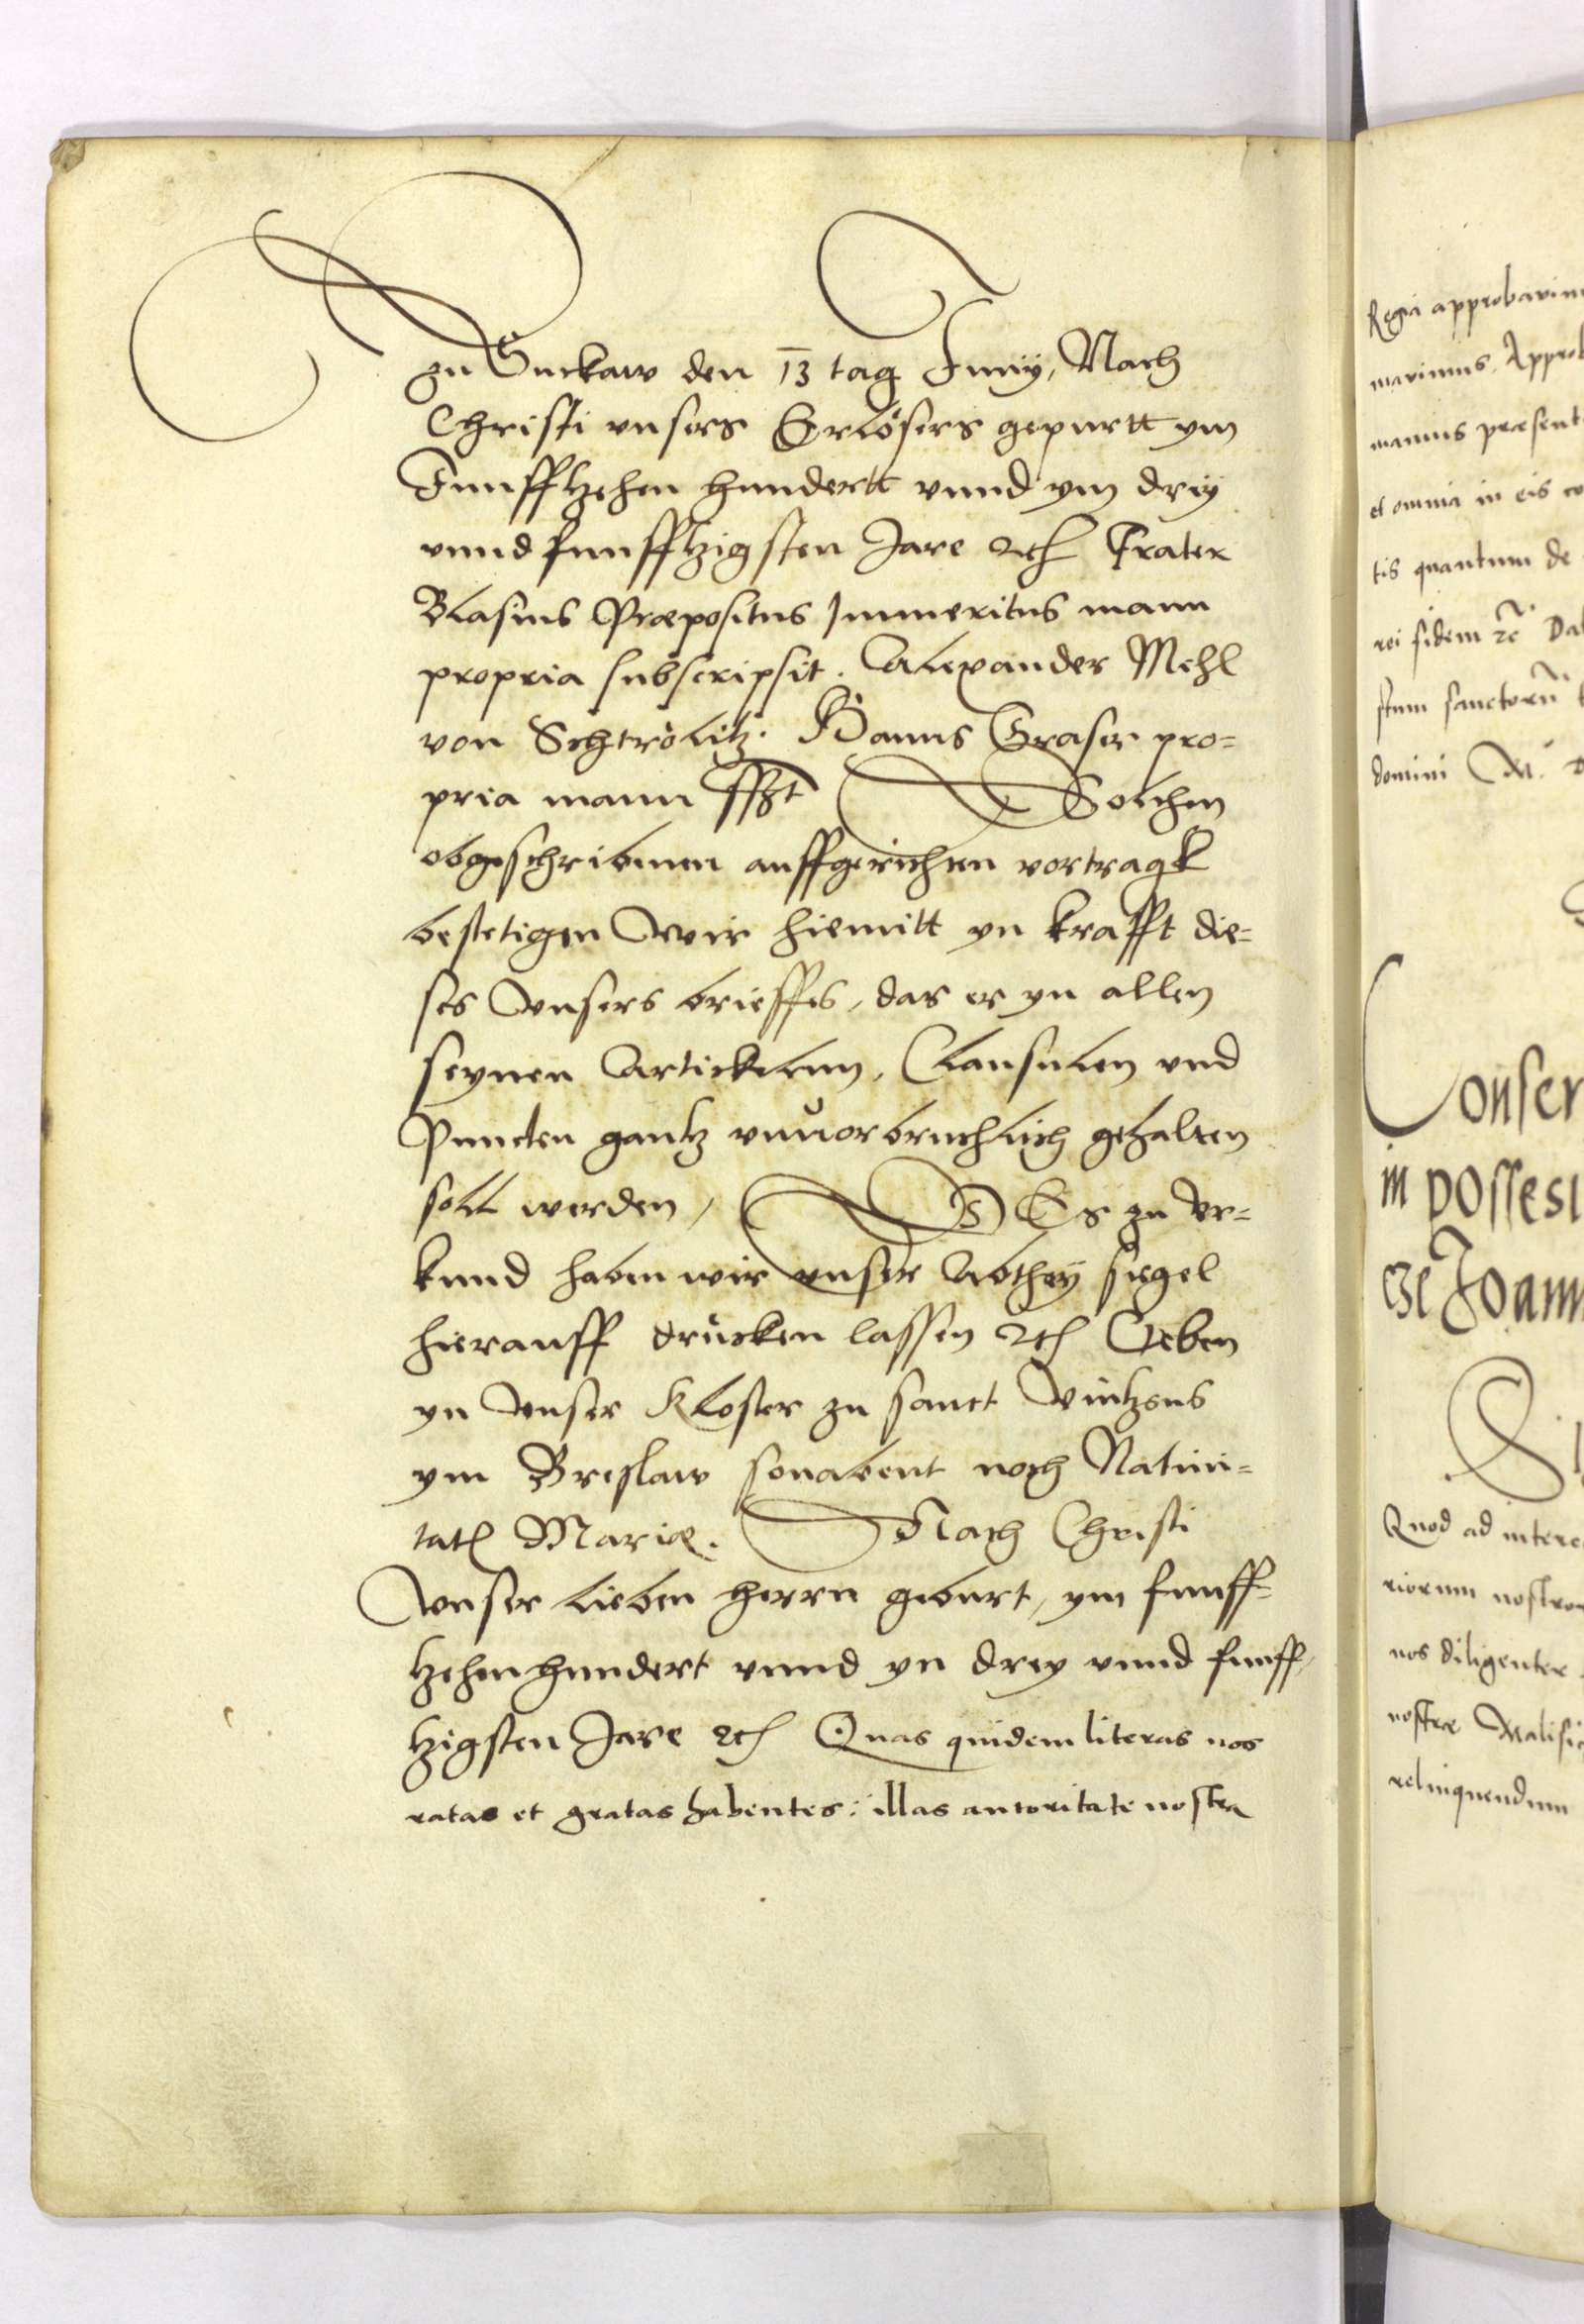 zu Suckaw den 13 tag Junij, Nach
Christi unsers Erlösers gepurtt ym
Funfftzehen hundertt unnd ym drij
unnd funfftzigsten Jare etc Frater
Blasius Præpositus Immeritus manu
propria subscripsit. Alexander Mehl
von Schtrölitz. Hanns Graser pro=
pria manu sszt Solchen
obgeschribenen auffgerichten vortragk
bestetigen Wir hiemitt yn krafft die=
ses Unsers brieffes, das er yn allen
seynen Artickelnn, Clausulen und
Puncten gantz unuorbruchlich gehalten
soll werden, DEs zu Ur=
kund haben wir unser Abthey siegel
hierauff drucken lassen etc Geben
yn Unser Kloster zu sanct Vintzens
ym Breslaw sonabent noch Natiui=
tatis Mariæ. Nach Christi
Unser lieben herrn geburt, ym funff=
tzehenhundert unnd yn drey unnd funff,
tzigsten Jare etc Quas quidem literas nos
ratas et gratas habentes: illas autoritate nostra
Regia approbavim
mavimus. Approb
manus præsent
et omnia in eis co
tis quantum de
rei fidem etc Dat
stum sanctoru
domini M. D
Conser
in possess
cze Joann
Si
Quod ad interc
riorum nostror
nos diligenter
nostræ
relinquendum